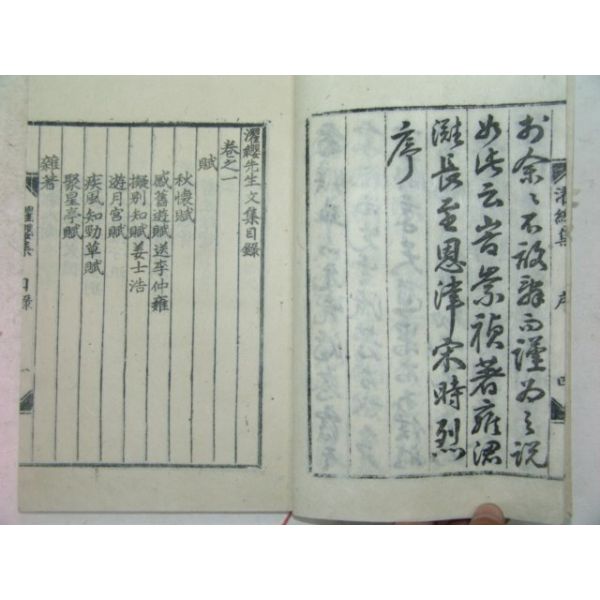 濯纓集 序 四
於余〻不敢辭而謹爲之說
如此云峕崇禎著雍涒
灘長至恩津宋時烈
序
濯纓先生文集目錄
卷之一
賦
秋懷賦
感舊遊賦送李仲雍
擬別知賦姜士浩
遊月宮賦
疾風知勁草賦
聚星亭賦
雜著
濯纓集 目錄 一